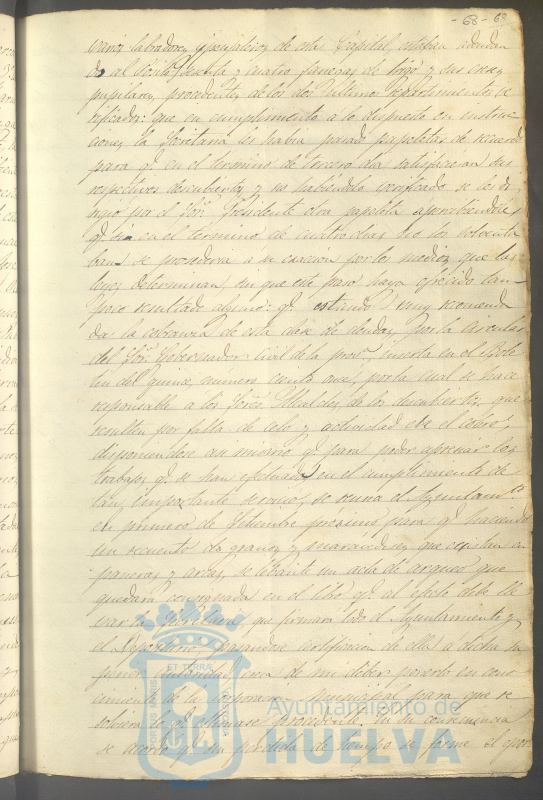 - 68 - 68
varios labradores y pegujaleros de esta Capital, estaban adeudan
do al Pósito ochenta y cuatro fanegas de trigo y sus creces
pupilares, procedentes de los dos últimos repartimientos ve
rificados: que en cumplimiento a lo dispuesto en instruc
ciones, la Secretaría les había pasado papeletas de recuerdo
para qe. en el termino de tercero dia satisfacieran sus
respectivos descubiertos, y no habiendolo verificado se les di
rigió por el Sor. Presidente otra papeleta apercibiendoles
qe. si en el termino de cuatro dias no los solventa
ban se procederia a su exaccion por los medios que las
leyes determinan, sin que este paso haya ofrecido tam-
poco resultado alguno: qe. estando muy recomenda
da la cobranza de esta clase de deudas, por la circular
del Sor. Gobernador Civil de la prova. inserta en el Bole
tin del quince, número ciento once, por la cual se hace
responsable a los Sores. Alcaldes de los descubiertos que
resulten por falta de celo y actividad en el cobro,
disponiendose asi mismo qe. para poder apreciar los
trabajos qe. se han efectuado en el cumplimiento de
tan importante servicio, se reuna el Ayuntamto.
en primero de Setiembre próximo para qe. haciendo
un recuento de granos y maravedises que existan en
paneras y arcas, se levante un acta de arqueo que
quedará consignada en el libro qe. al efecto debe lle
var la Secretaria que firmará todo el Ayuntamiento y
el Depositario, pasandose certificacion de ella a dicha su
perior autoridad, creia de mi deber ponerlo en cono
cimiento de la Corporacion Municipal para que re
solviera lo qe. estimase procedente. En su consecuencia
se acordó qe. sin perdida de tiempo se forme el espe
ET TERRAE
Ayuntamiento de
HUELVA